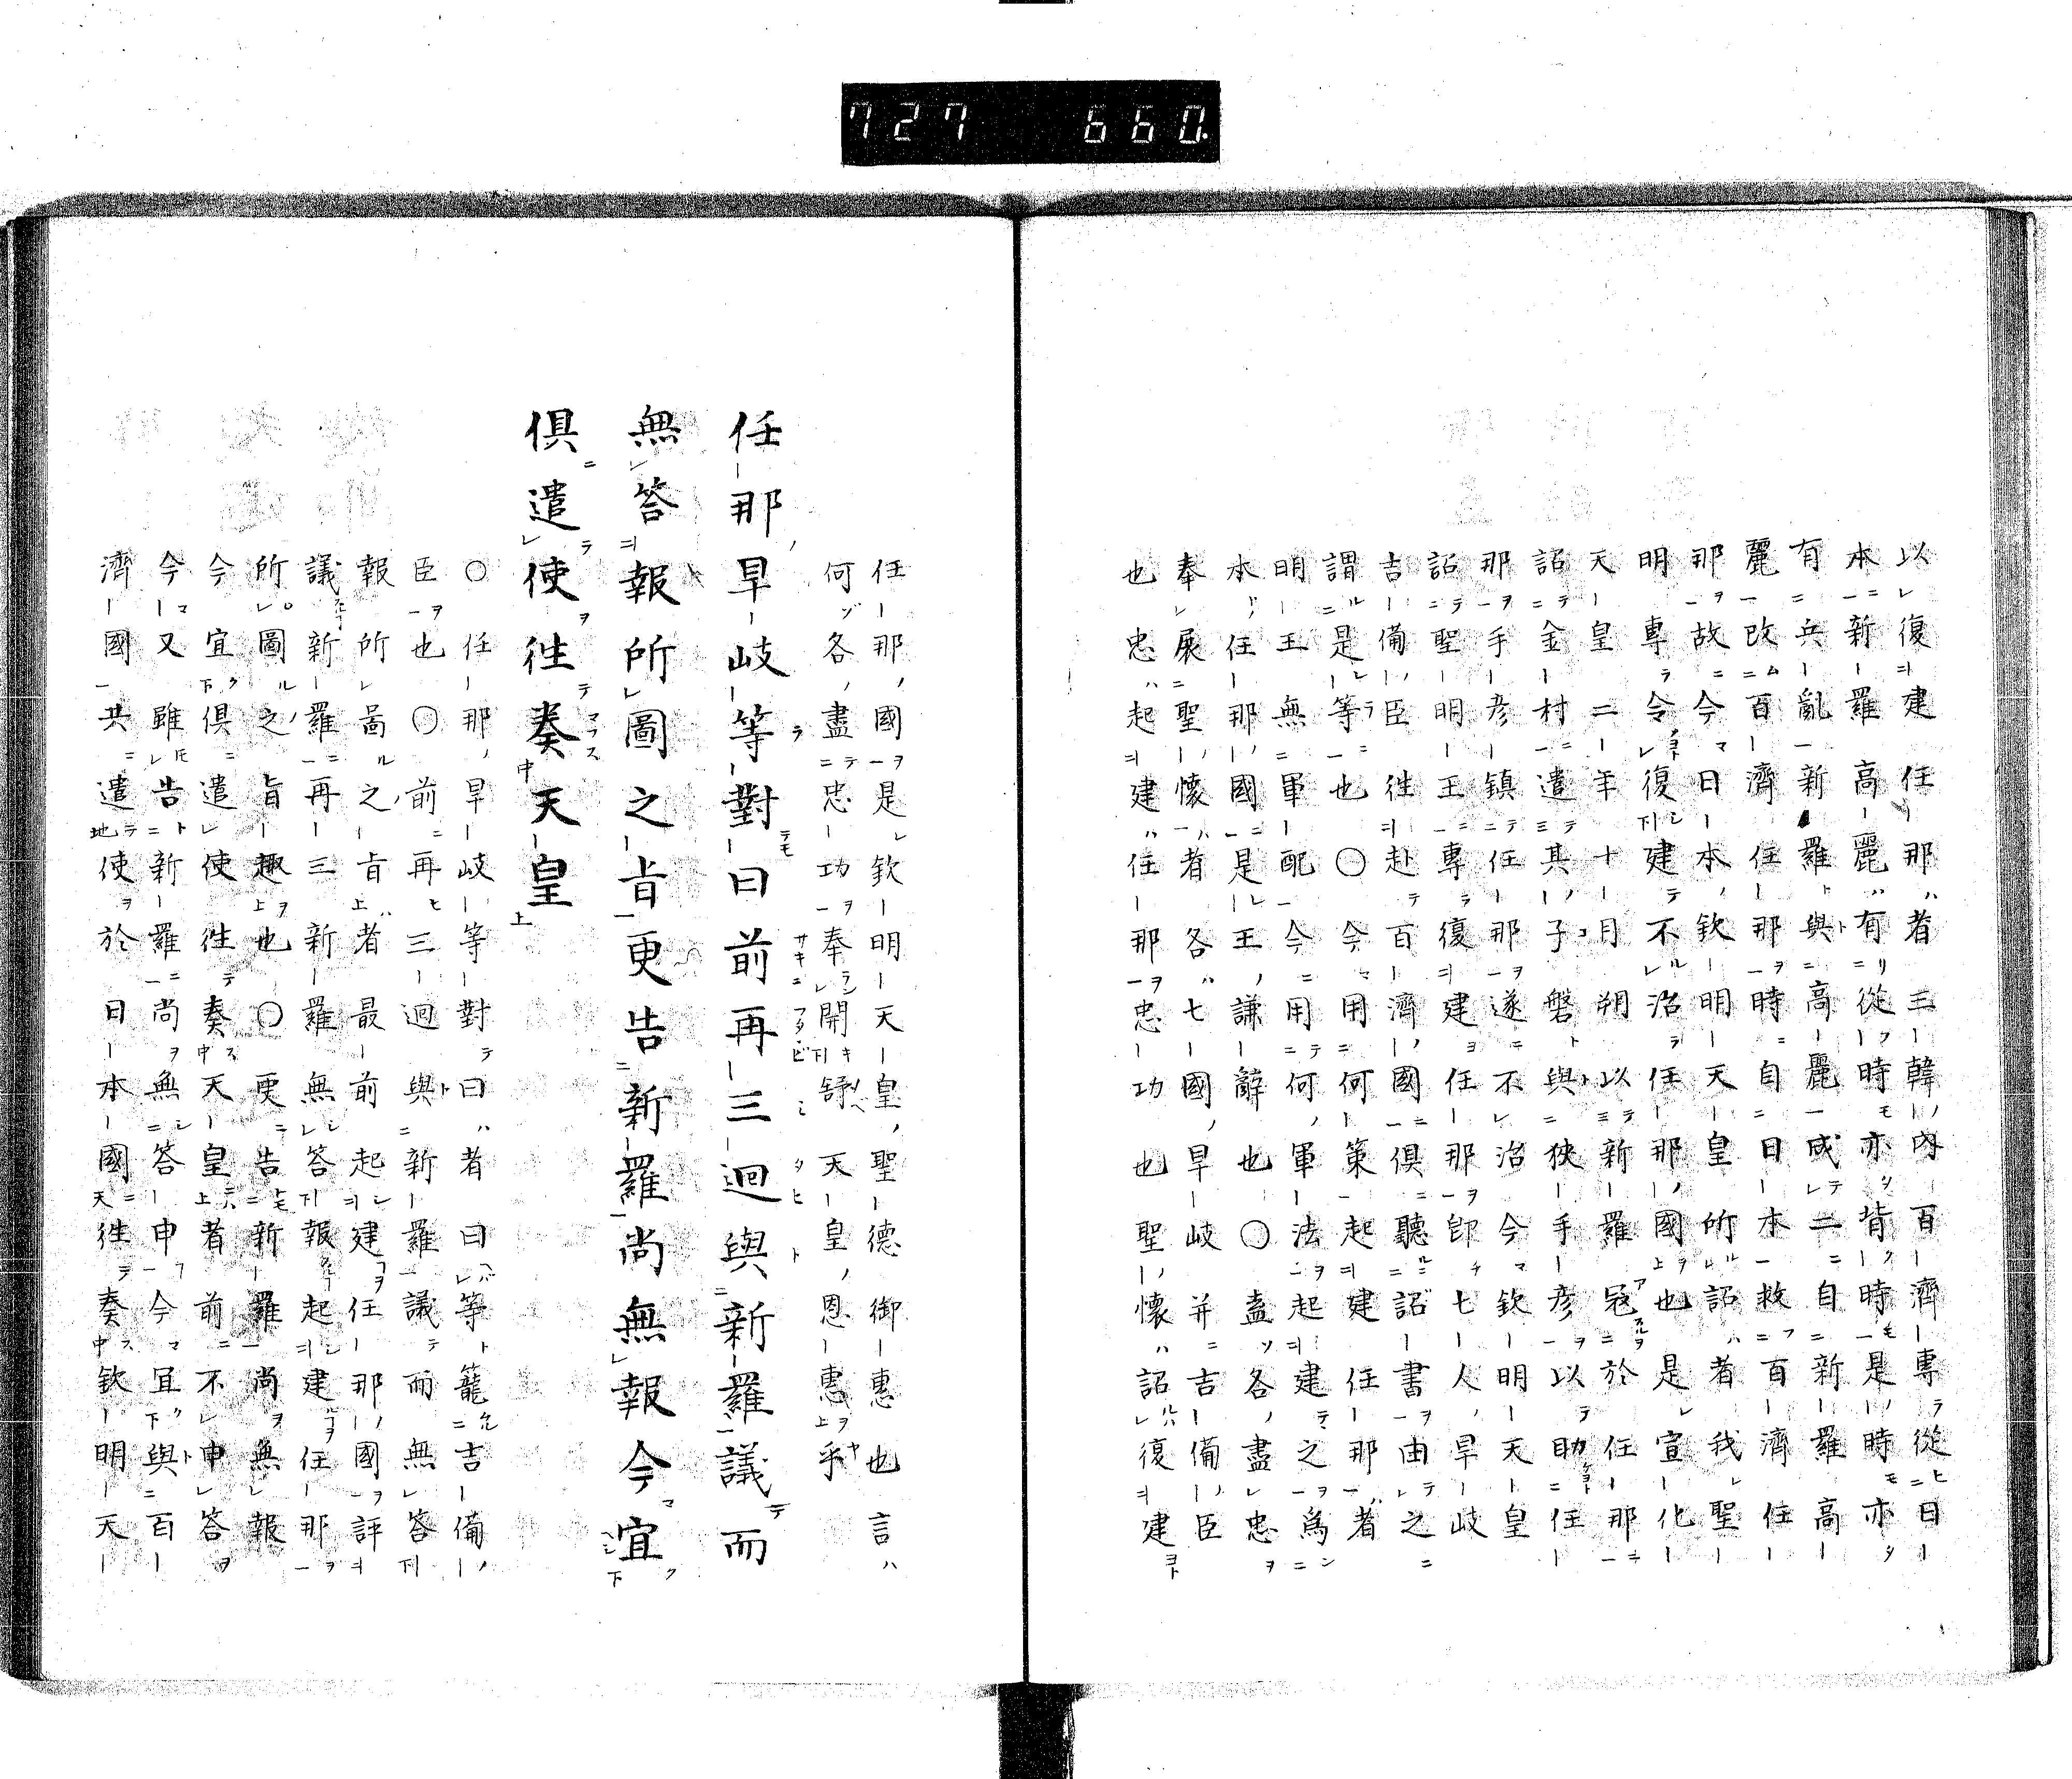 727 660.
以復建任那者三韓内百濟專從日
本新羅高麗有從時亦背時是時亦
有兵亂新羅與高麗咸二自新羅高
麗改百濟任那時自日本救百濟任
那故今日本欽明天皇所詔者我聖
明專令復建不治任那國也是宣化
天皇二年十月朔以新羅冦於任那
詔金村遣其子磐與狹手彦以助任
那手彦鎮任那遂不治今欽明天皇
詔聖明王專復建任那卽七人旱岐
吉備臣往赴百濟國俱聽詔書由之
謂是等也〇今用何策起建任那者
明王無軍配今用何軍法起建之爲
本任那國是王謙辭也〇盍各盡忠
奉展聖懷者各七國旱岐并吉備臣
也忠起建任那忠功也聖懷詔復建
任那國是欽明天皇聖德御惠也言
何各盡忠功奉開舒天皇恩惠乎
任那旱岐等對曰前再三迴與新羅議而
無答報所圖之旨更告新羅尚無報今宜
俱遣使往奏天皇
〇任那旱岐等對曰者曰等籠吉備
臣也〇前再三迴與新羅議而無答
報所啚之旨者最前起建任那國評
議新羅再三新羅無答報起建任那
所圖之旨趣也〇更告新羅尚無報
今宜俱遣使往奏天皇者前不申答
今又雖告新羅尚無答申今宜與百
濟國共遣使於日本國往奏欽明天